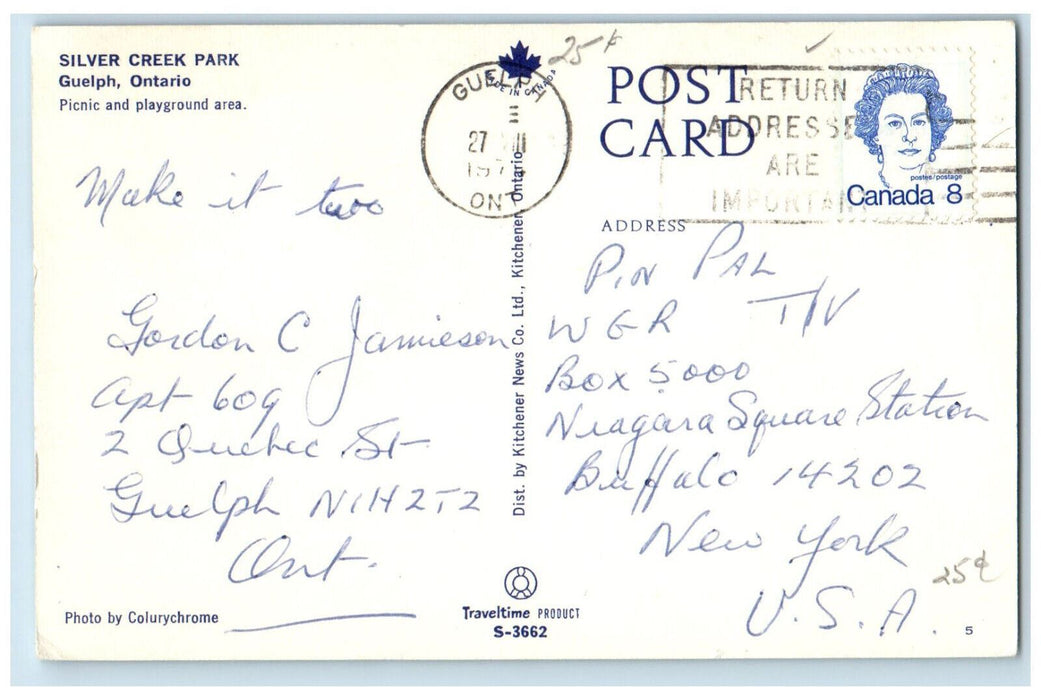 SILVER CREEK PARK
Guelph, Ontario
Picnic and playground area.
Make it two
Gordon C Jamieson
Apt 609
2 Quebec St
Guelph N1H2T2
Ont.
Photo by Colurychrome
MADE IN CANADA
25¢
GUELPH
27 VIII
197
ONT
Dist. by Kitchener News Co. Ltd., Kitchener, Ontario
Traveltime PRODUCT
S-3662
POST
CARD
RETURN
ADDRESSES
ARE
IMPORTANT
postes/postage
Canada 8
ADDRESS
PIN PAL
WGR T/V
Box 5000
Niagara Square Station
Buffalo 14202
New York
U.S.A.
25¢
5